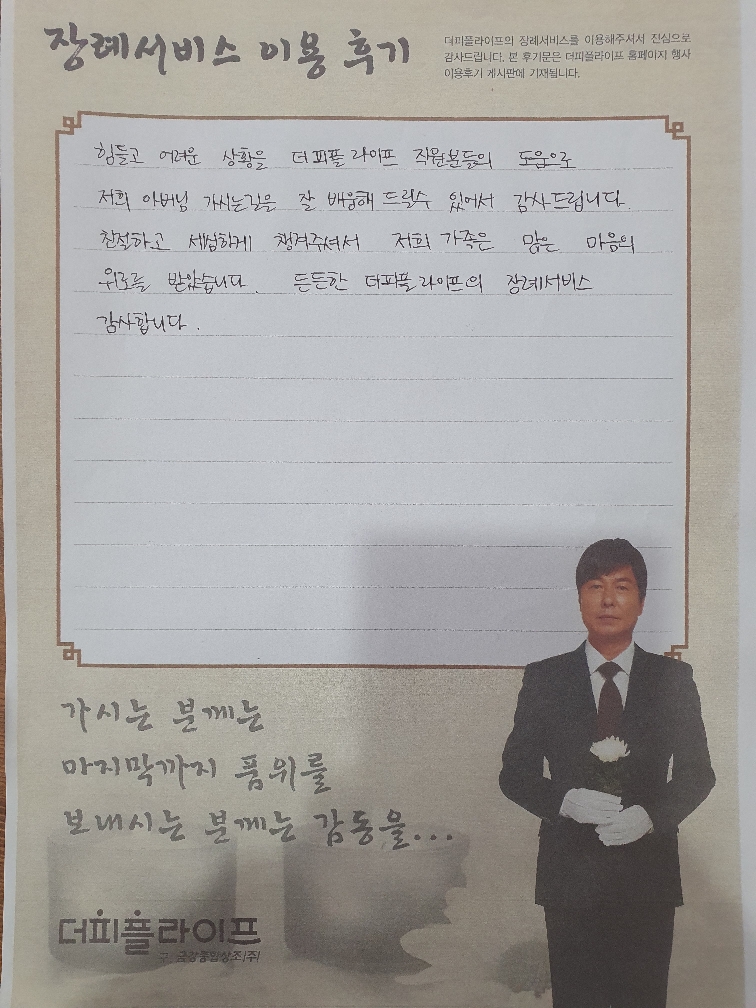 장례서비스 이용 후기
더피플라이프의 장례서비스를 이용해주셔서 진심으로
감사드립니다. 본 후기문은 더피플라이프 홈페이지 행사
이용후기 게시판에 기재됩니다.
힘들고 어려운 상황을 더피플라이프 직원분들의 도움으로
저희 아버님 가시는길을 잘 배웅해 드릴수 있어서 감사드립니다.
친절하고 세심하게 챙겨주셔서 저희 가족은 많은 마음의
위로를 받았습니다. 든든한 더피플라이프의 장례서비스
감사합니다.
가시는 분께는
마지막까지 품위를
보내시는 분께는 감동을...
더피플라이프
구. 금강종합상조(주)